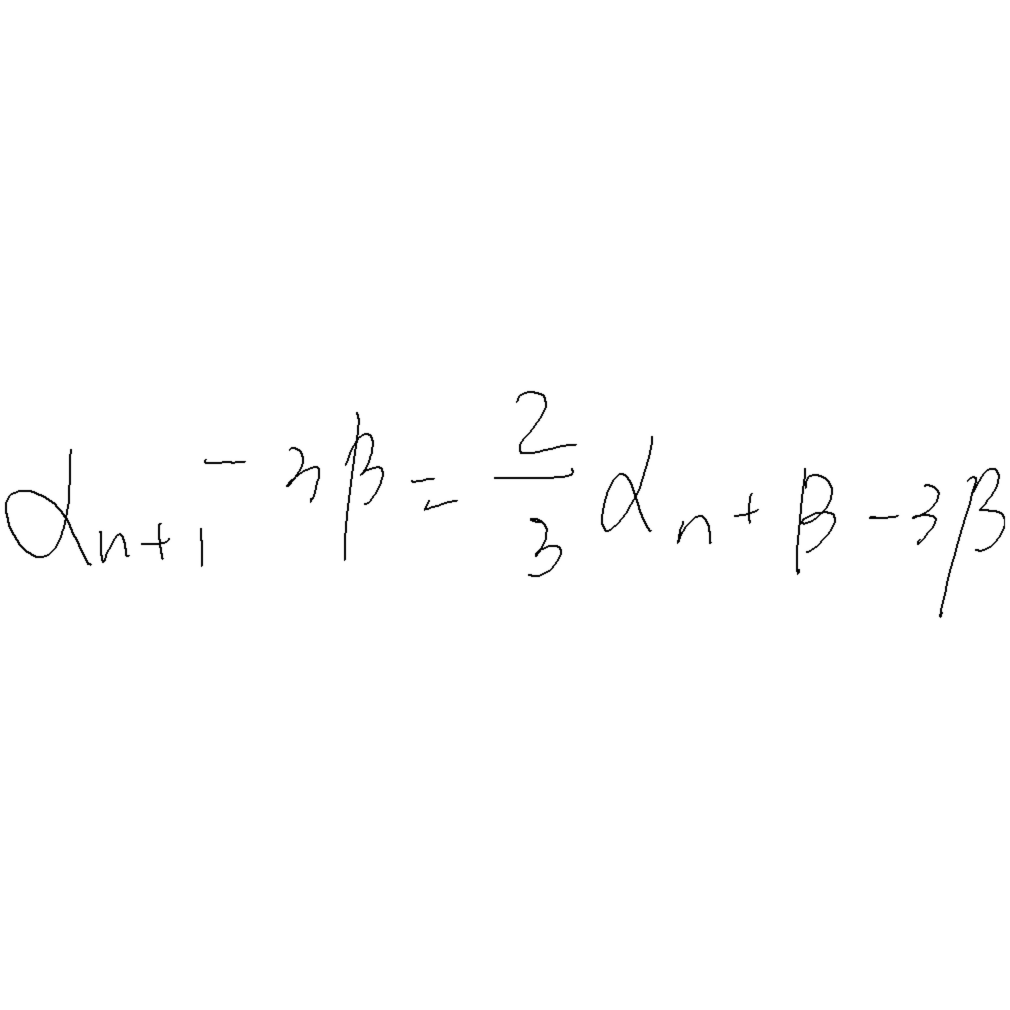 $\alpha_{n+1} - 3\beta = \frac{2}{3}\alpha_n + \beta - 3\beta$